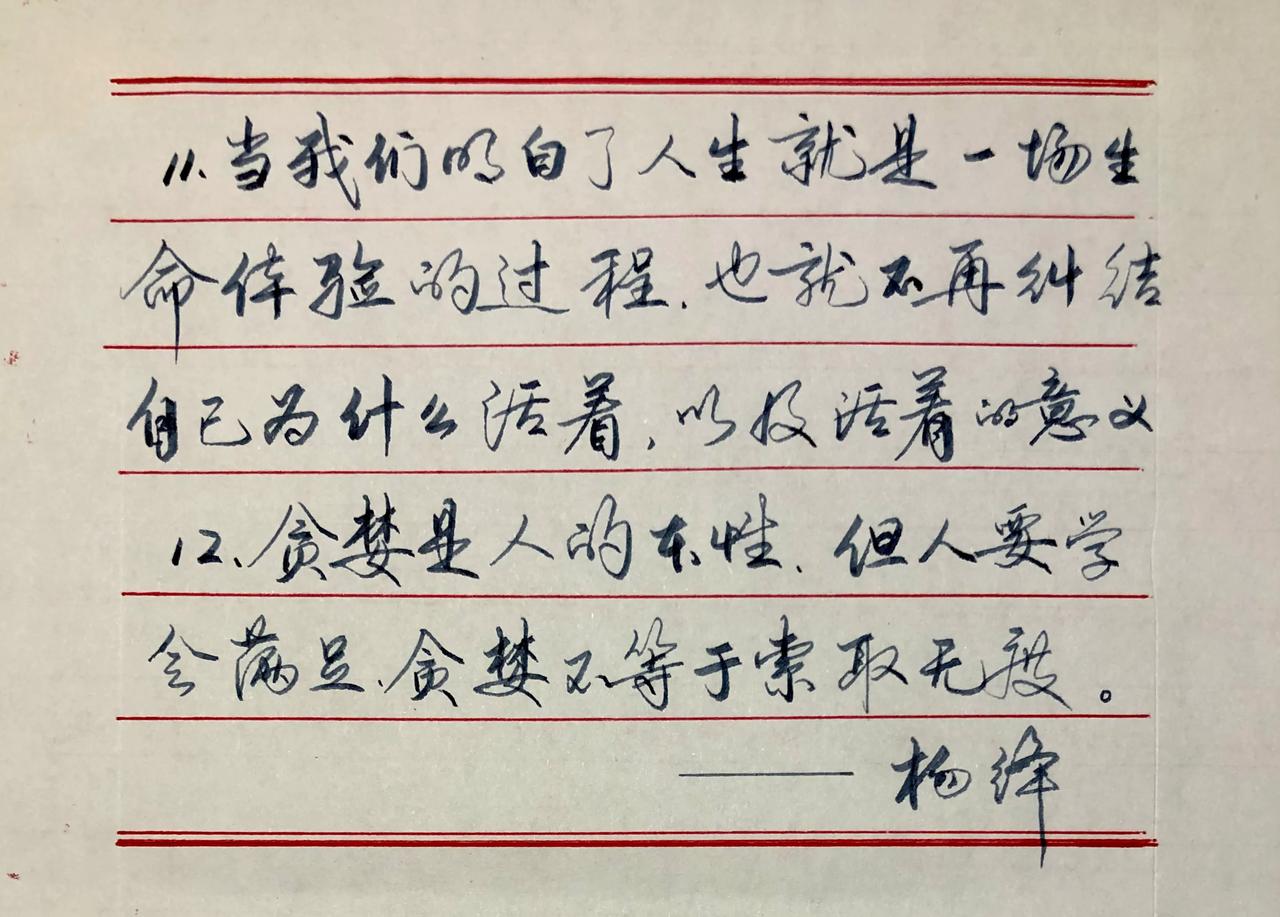 11.当我们明白了人生就是一场生
命体验的过程、也就不再纠结
自己为什么活着、以及活着的意义
12、贪婪是人的本性、但人要学
会满足、贪婪不等于索取无度。
——杨绛